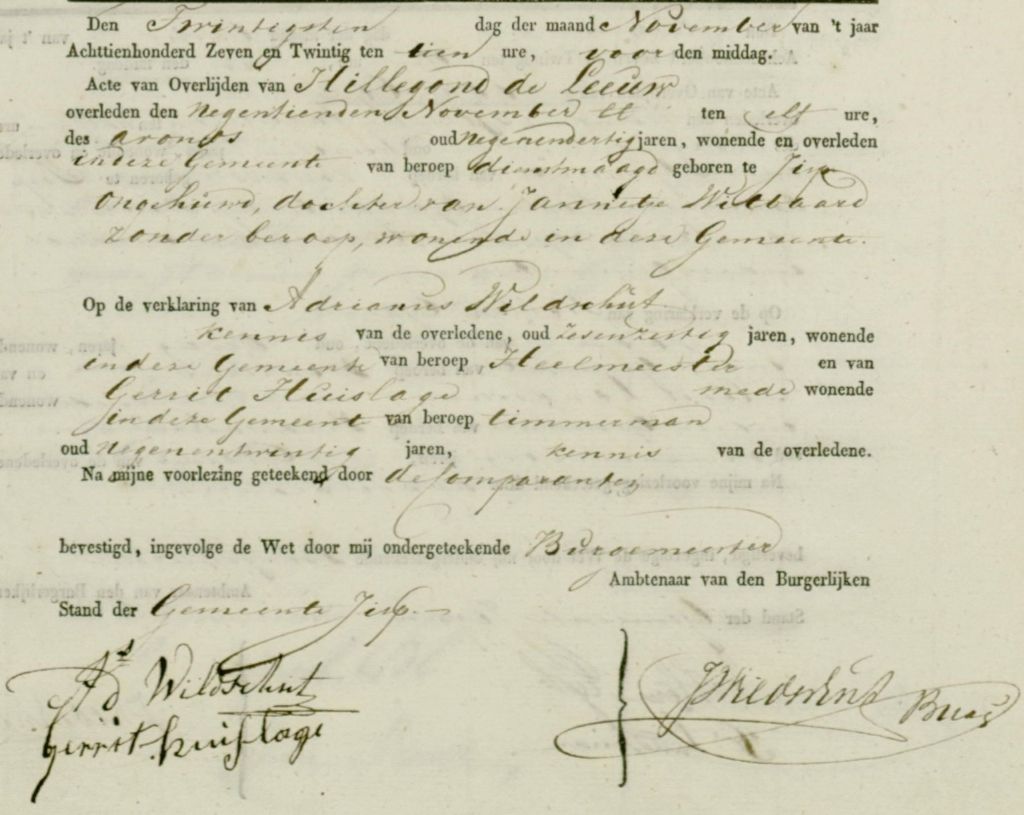 Den Twintigsten dag der maand November van 't jaar
Achttienhonderd Zeven en Twintig ten tien ure, voor den middag.
Acte van Overlijden van Hillegond de Leeuw
overleden den negentienden November ll ten elf ure,
des avonds oud negenendertig jaren, wonende en overleden
in deze Gemeente van beroep dienstmaagd geboren te Jisp
ongehuwd, dochter van Jannetje Witbaard
zonder beroep, wonende in deze Gemeente.
Op de verklaring van Adrianus Wildschut
kennis van de overledene, oud zesenzestig jaren, wonende
in deze Gemeente van beroep Heelmeester en van
Gerrit Huislage mede wonende
in deze Gemeent van beroep timmerman
oud negenentwintig jaren, kennis van de overledene.
Na mijne voorlezing geteekend door de Comparanten
bevestigd, ingevolge de Wet door mij ondergeteekende Burgemeester
Ambtenaar van den Burgerlijken
Stand der Gemeente Jisp
Ads Wildschut
Gerrit Huislage